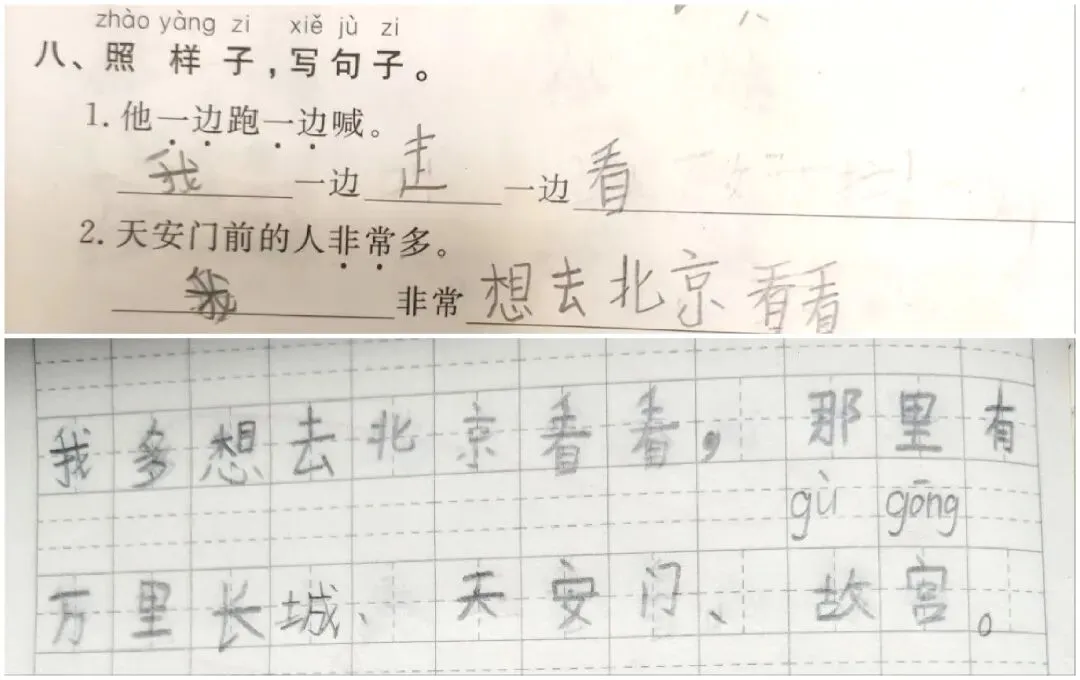 zhào yàng zi xiě jù zi
八、照样子，写句子。
1. 他一边跑一边喊。
我一边走一边看
2. 天安门前的人非常多。
我非常想去北京看看
我多想去北京看看，那里有
gù gōng
万里长城、天安门、故宫。